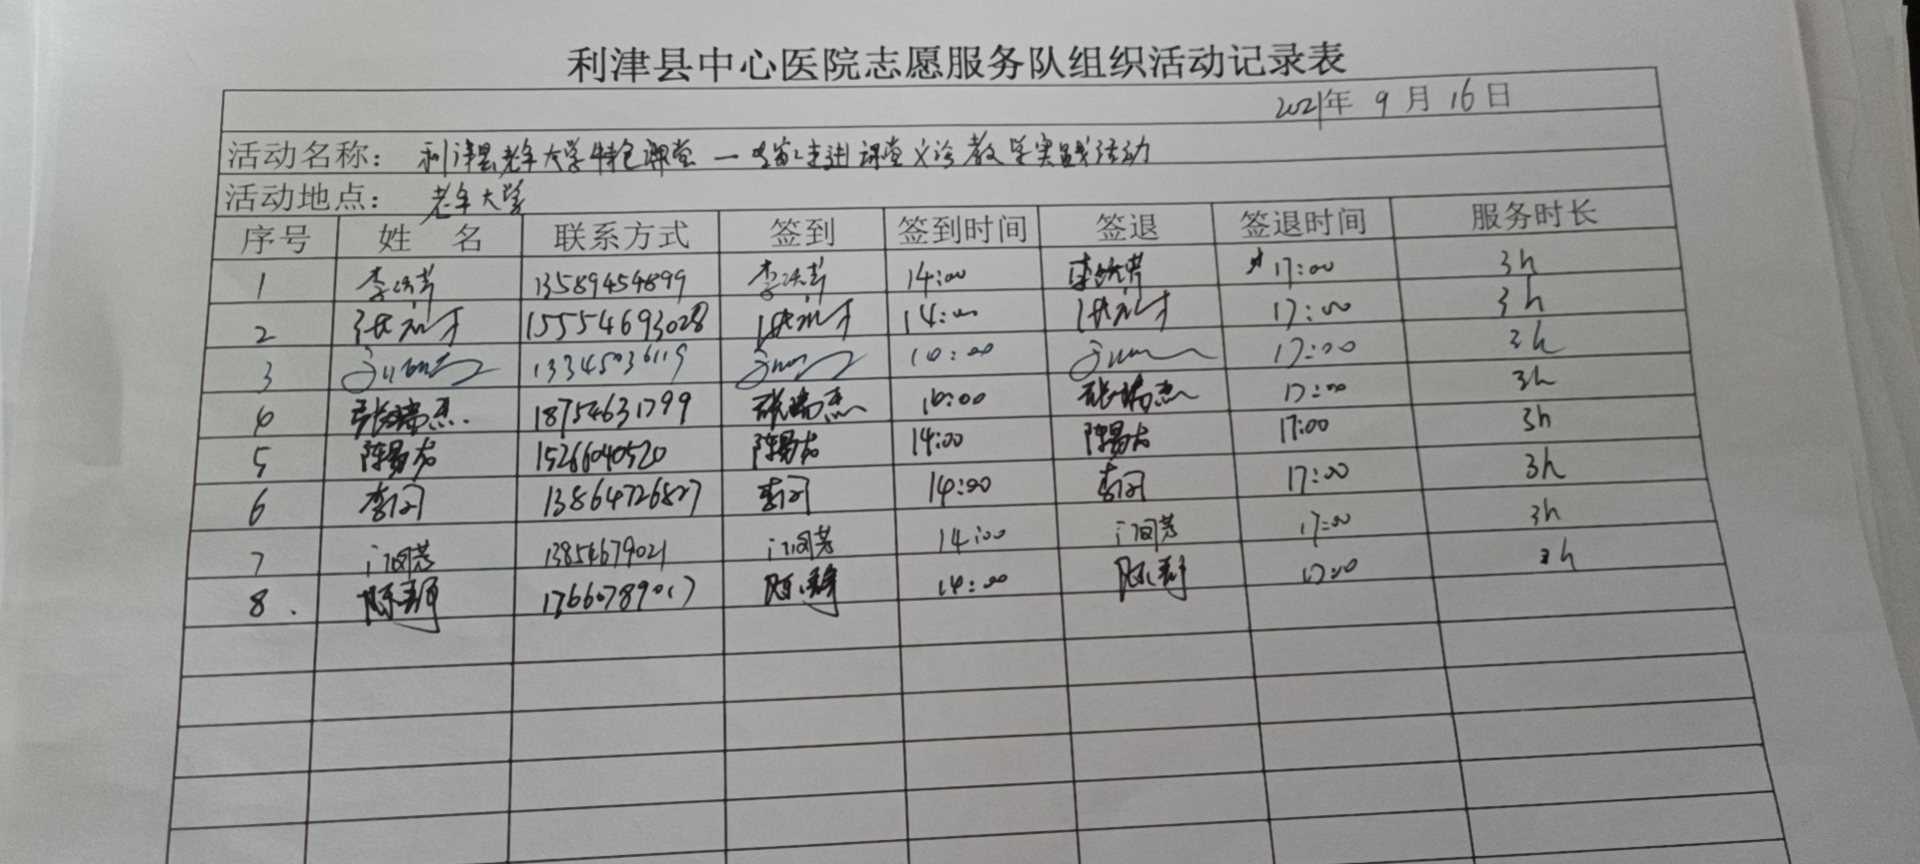 利津县中心医院志愿服务队组织活动记录表
2021年 9 月 16 日
活动名称: 利津县老年大学特色课堂一专家走进课堂义诊教学实践活动
活动地点: 老年大学
序号 姓 名 联系方式 签到 签到时间 签退 签退时间 服务时长
1 李洪芹 13589454899 李洪芹 14:00 李洪芹 17:00 3h
2 15554693028 14:00 17:00 3h
3 13345036119 14:00 17:00 3h
4 张瑞杰 18754631799 张瑞杰 14:00 张瑞杰 17:00 3h
5 陈易 15266040520 陈易 14:00 陈易 17:00 3h
6 李闪 13864726827 李闪 14:00 李闪 17:00 3h
7 13854679021 14:00 17:00 3h
8 陈静 17660789017 陈静 14:00 陈静 17:00 3h